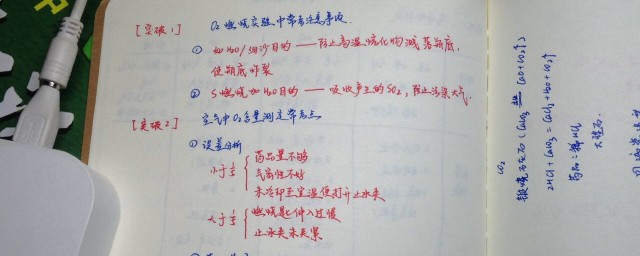 [突破1] O₂燃烧实验中常考注意事项.
① 加H₂O/细沙目的——防止高温熔化物溅落瓶底,
使瓶底炸裂
② S燃烧加H₂O目的——吸收产生的SO₂,防止污染大气.
[突破2] 空气中O₂含量测定常考点
① 误差分析
小于1/5 { 药品量不够
气密性不好
未冷却至室温便打开止水夹
大于1/5 { 燃烧匙伸入过慢
止水夹未夹紧
CO₂
煅烧石灰石(CaCO₃ 高温 CaO+CO₂↑)
2HCl+CaCO₃=CaCl₂+H₂O+CO₂↑
药品:稀HCl
大理石.